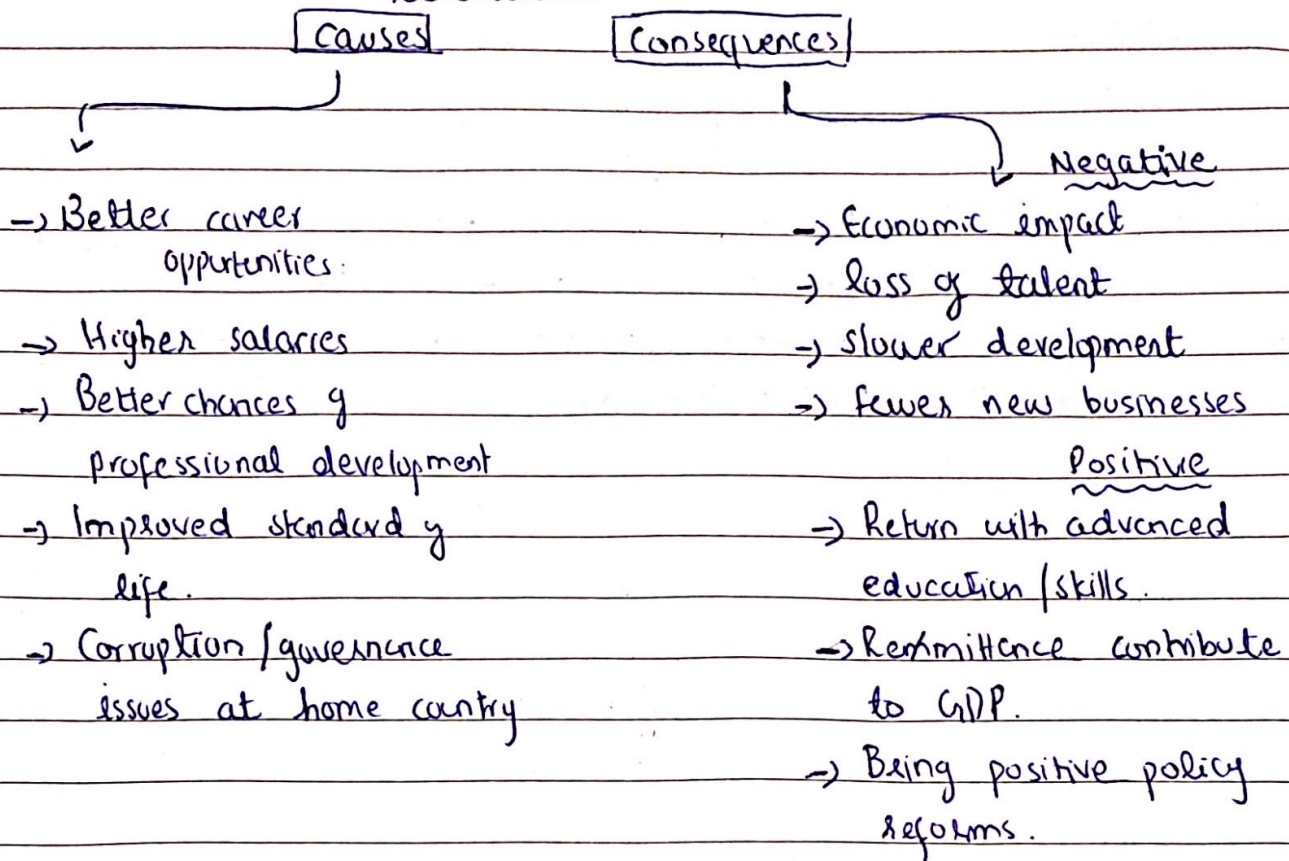 Causes
Consequences
-> Better career
oppurtenities.
-> Higher salaries
-> Better chances of
professional development
-> Improved standard of
life.
-> Corruption/governance
issues at home country
Negative
-> Economic impact
-> loss of talent
-> slower development
-> fewer new businesses
Positive
-> Return with advanced
education/skills.
-> Remmittance contribute
to GDP.
-> Being positive policy
reforms.